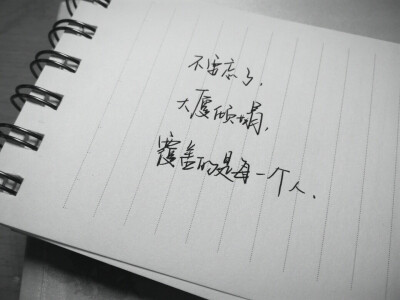 不要忘了,
大厦倾塌,
覆盖的是每一个人.